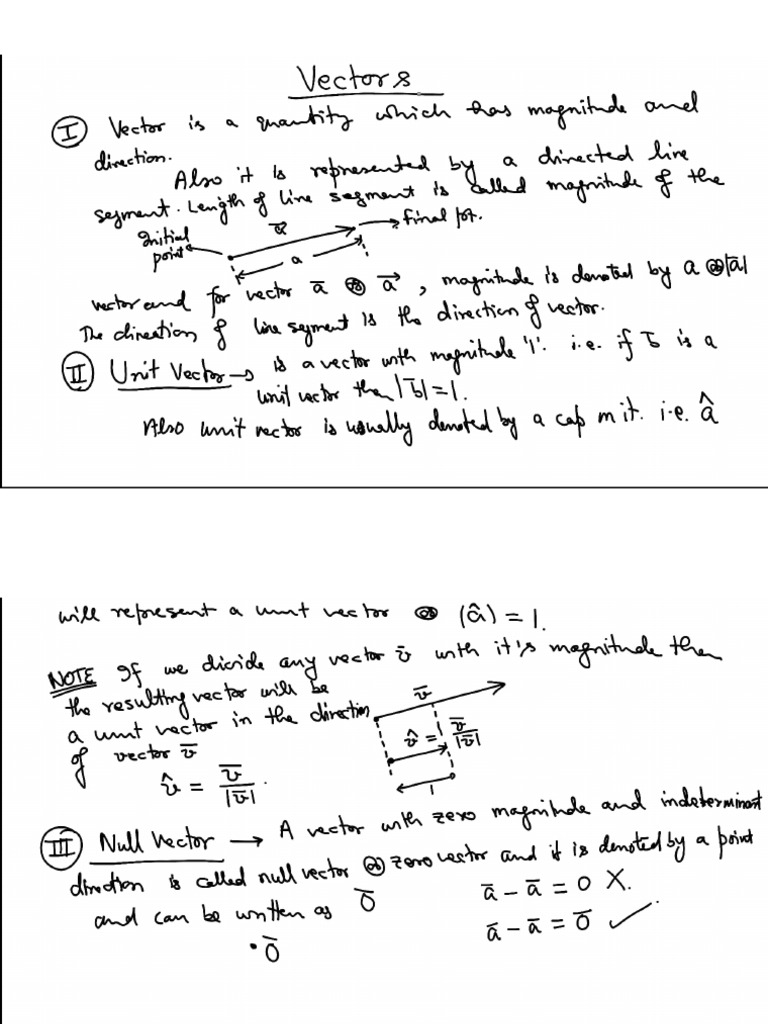 Vectors
I Vector is a quantity which has magnitude and
direction.
Also it is represented by a directed line
segment. Length of line segment is called magnitude of the
initial point
a̅
final pt.
a
vector and for vector a̅ or a⃗, magnitude is denoted by a or |a̅|
The direction of line segment is the direction of vector.
II Unit Vector → is a vector with magnitude '1'. i.e. if b̅ is a
unit vector then |b̅| = 1.
Also unit vector is usually denoted by a cap on it. i.e. â
will represent a unit vector or (â) = 1.
NOTE If we divide any vector v̅ with it's magnitude then
the resulting vector will be
a unit vector in the direction
of vector v̅
v̂ = v̅/|v̅|.
v̅
v̂ = v̅/|v̅|
1
III Null Vector → A vector with zero magnitude and indeterminant
direction is called null vector or zero vector and it is denoted by a point
and can be written as 0̅
a̅ - a̅ = 0 X.
a̅ - a̅ = 0̅ ✓
• 0̅